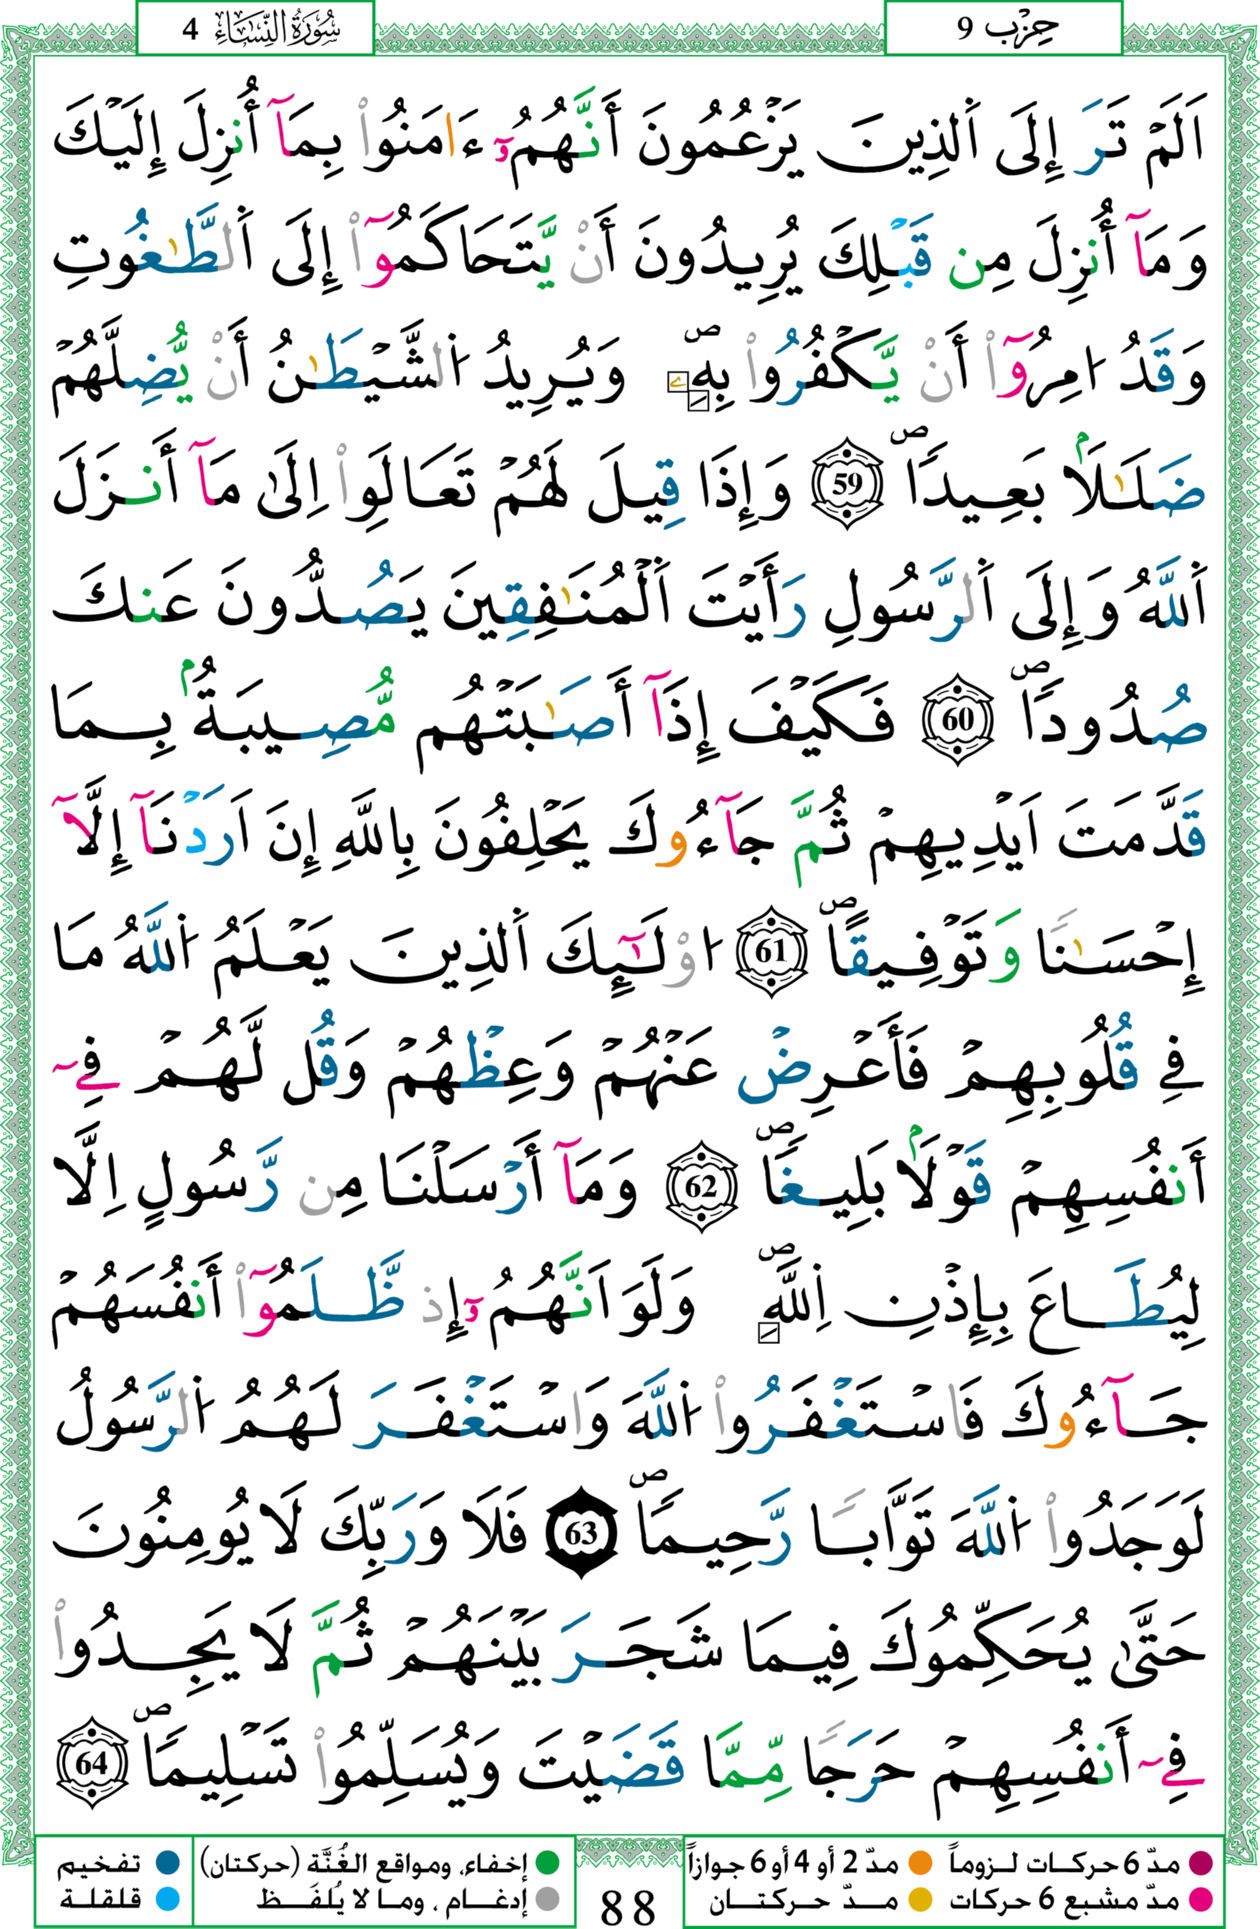 حِزْب 9
سُورَةُ النِّسَاءِ 4
اَلَمْ تَرَ إِلَى اَ۬لذِينَ يَزْعُمُونَ أَنَّهُمُۥٓ ءَامَنُواْ بِمَآ أُنزِلَ إِلَيْكَ
وَمَآ أُنزِلَ مِن قَبْلِكَ يُرِيدُونَ أَنْ يَّتَحَاكَمُوٓاْ إِلَى اَ۬لطَّٰغُوتِ
وَقَدُ ا۟مِرُوٓاْ أَنْ يَّكْفُرُواْ بِهِۦۖ وَيُرِيدُ اُ۬لشَّيْطَٰنُ أَنْ يُّضِلَّهُمْ
ضَلَٰلاَۢ بَعِيداٗۖ 59 وَإِذَا قِيلَ لَهُمْ تَعَالَوِاْ اِلَىٰ مَآ أَنزَلَ
اَ۬للَّهُ وَإِلَى اَ۬لرَّسُولِ رَأَيْتَ اَ۬لْمُنَٰفِقِينَ يَصُدُّونَ عَنكَ
صُدُوداٗۖ 60 فَكَيْفَ إِذَآ أَصَٰبَتْهُم مُّصِيبَةُۢ بِمَا
قَدَّمَتَ اَيْدِيهِمْ ثُمَّ جَآءُوكَ يَحْلِفُونَ بِاللَّهِ إِنَ اَرَدْنَآ إِلَّآ
إِحْسَٰناٗ وَتَوْفِيقاًۖ 61 ا۟وْلَٰٓئِكَ اَ۬لذِينَ يَعْلَمُ اُ۬للَّهُ مَا
فِے قُلُوبِهِمْ فَأَعْرِضْ عَنْهُمْ وَعِظْهُمْ وَقُل لَّهُمْ فِےٓ
أَنفُسِهِمْ قَوْلاَۢ بَلِيغاٗۖ 62 وَمَآ أَرْسَلْنَا مِن رَّسُولٍ اِلَّا
لِيُطَاعَ بِإِذْنِ اِ۬للَّهِۖ وَلَوَ اَنَّهُمُۥٓ إِذ ظَّلَمُوٓاْ أَنفُسَهُمْ
جَآءُوكَ فَاسْتَغْفَرُواْ اُ۬للَّهَ وَاسْتَغْفَرَ لَهُمُ اُ۬لرَّسُولُ
لَوَجَدُواْ اُ۬للَّهَ تَوَّاباٗ رَّحِيماٗۖ 63 فَلَا وَرَبِّكَ لَا يُومِنُونَ
حَتَّىٰ يُحَكِّمُوكَ فِيمَا شَجَرَ بَيْنَهُمْ ثُمَّ لَا يَجِدُواْ
فِےٓ أَنفُسِهِمْ حَرَجاٗ مِّمَّا قَضَيْتَ وَيُسَلِّمُواْ تَسْلِيماٗۖ 64
مدّ 6 حركات لـزوماً مدّ 2 أو 4 أو 6 جوازاً
مدّ مشبع 6 حركات مـدّ حركتـان
88
إخفاء، ومواقع الغُنَّة (حركتان) تفخيم
إدغـام ، ومـا لا يُلفَـظ قلقلة